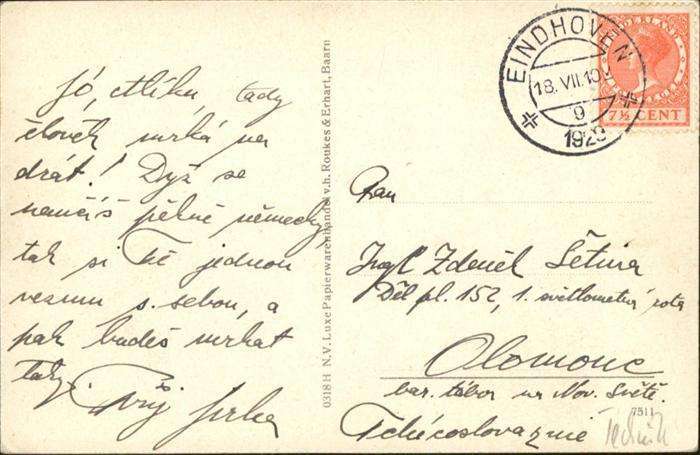 Jó, Mlíku, tady
člověk mrká na
drát! Dyž se
naučíš pěkně německy,
tak si Tě jednou
vezmu s sebou, a
pak budeš mrkat
taky.
Tvůj Jirka
0318H N.V. Luxe Papierwarenhandel v.h. Roukes & Erhart, Baarn
EINDHOVEN
18.VII.10
9
1929
NEDERLAND
7½ CENT
Pan
Ing C Zdeněk Šetina
Děl pl. 152, 1. světlometná rota
Olomouc
bar. tábor na Nov. Světě.
7511
Tchécoslovaquie